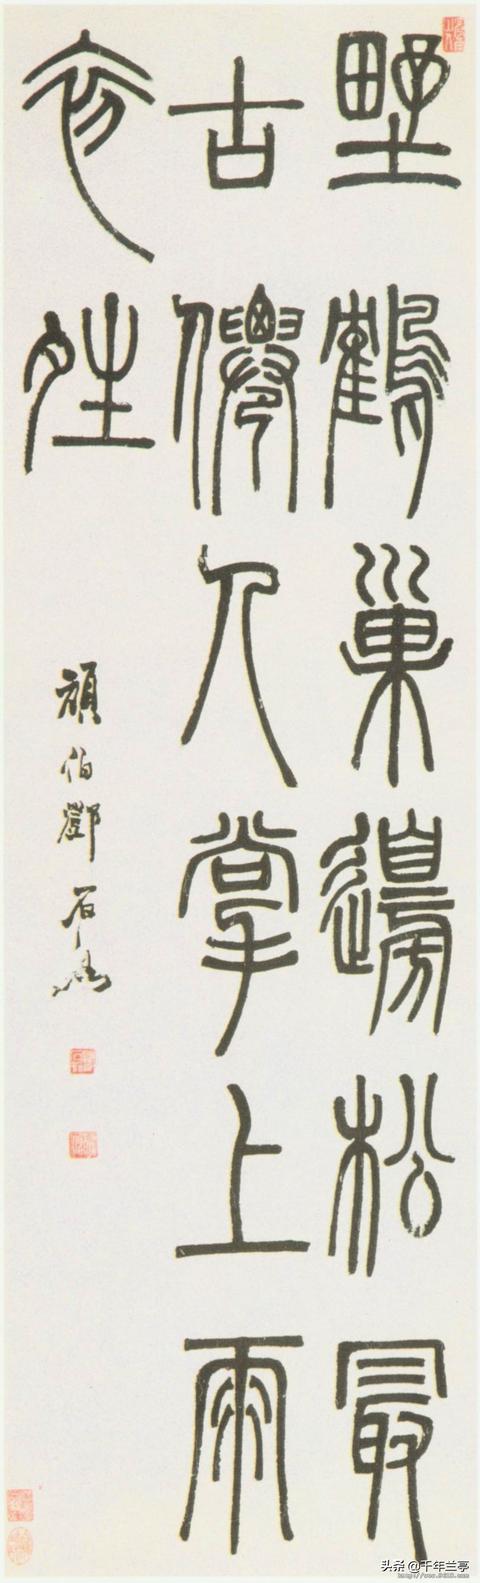 野鶴巢邊松最
古僊人掌上雨
初夝
頑伯鄧石如
头条 @千年兰亭